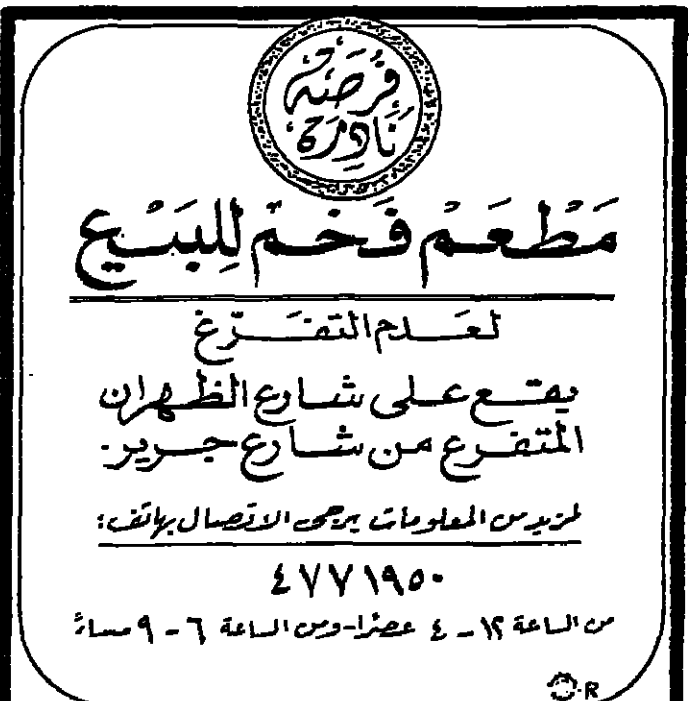 فُرْصَة
نَادِرَة
مَطْعَمْ فَخْم لِلبَيْع
لعَدم التفَرّغ
يقع على شارع الظهران
المتفرع من شارع جرير.
لمزيد من المعلومات يرجى الاتصال بهاتف:
٤٧٧١٩٥٠
من الساعة ١٢ - ٤ عصرًا - ومن الساعة ٦ - ٩ مساءً
R